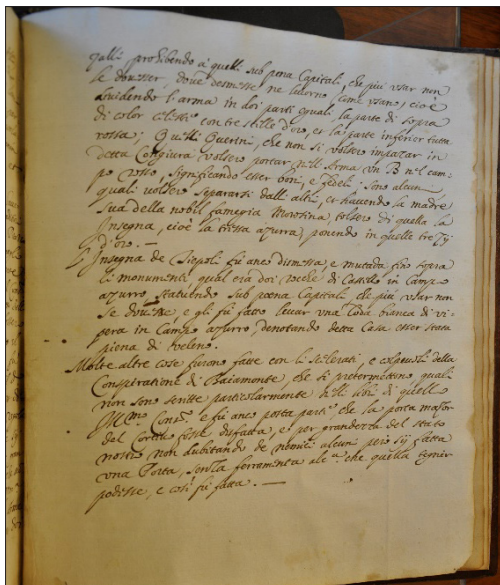 galli prohibendo à quelli sub pena Capitali, che piu usar non
le dovesser, dove dismesse ne levorno come usano, cioè
dividendo l'arma in doi parti equali, la parte di sopra
di color celeste con tre stelle d'oro, et la parte inferior tutta
rossa; Quelli Querini, che non si volsero impazar in
detta Congiura volsero portar nell'Arma un B nel cam-
po rosso, significando esser boni, e fedeli; sono alcuni
quali volsero separarsi dall'altri, et havendo la madre
sua della nobil fameglia Morosina tolsero di quella la
Insegna, cioè la tressa azurra, ponendo in quelle tre
d'oro. —
L'Insegna de Tiepoli fu anco dismessa, e mutada fino sopra
li monumenti, qual era doi di Castello in Campo
azurro, statuendo sub poena Capitali che piu usar non
se dovesse, e gli fu fatto levar una Coda bianca di vi-
pera in Campo azurro, denotando detta Casa esser stata
piena di veleno.
Molte altre cose furono fatte con li scelerati, e colpevoli della
Conspiratione di Baiamonte, che si pretermettino quali
non sono scritte particolarmente nelli libri di quell
e fu anco posta parte che la porta mazor
del fosse disfatta, et per grandezza del stato
nostro non dubitando de nemici alcuni però sij fatta
una Porta, senza ferramenta che quella tegnir
podesse, e così fu fatta. —